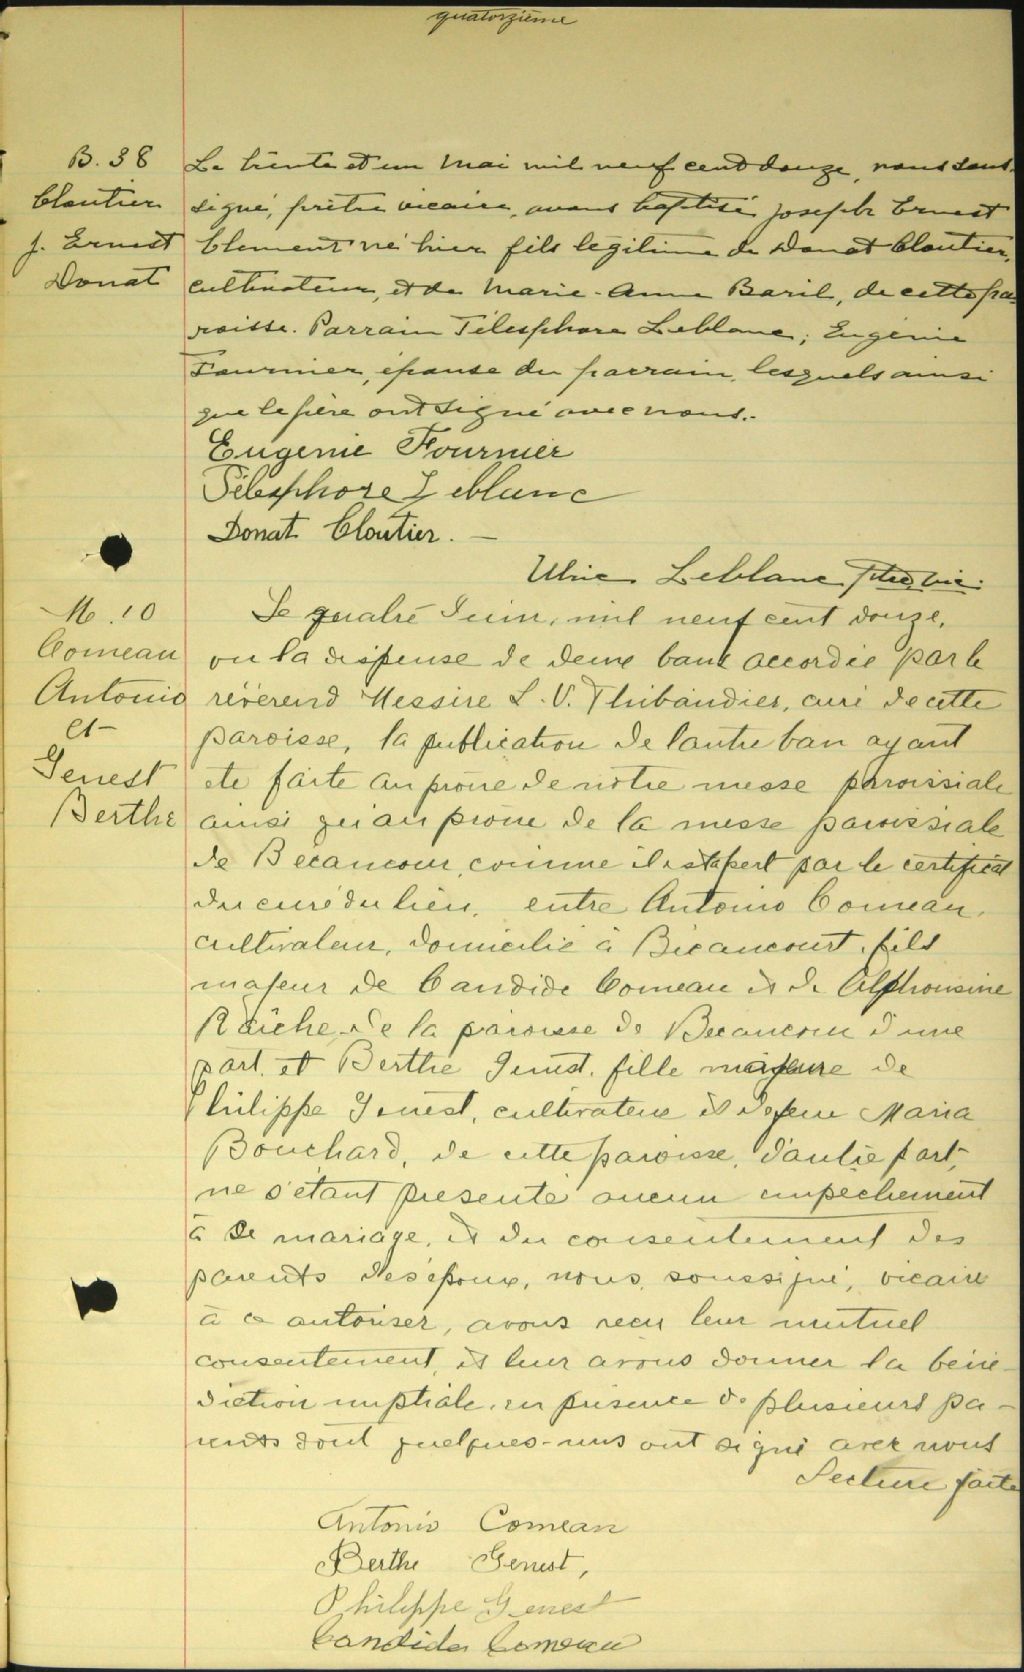 quatorzième
B. 38
Cloutier
J. Ernest
Donat
Le trente et un Mai mil neuf cent douze, nous sous-
signé, prêtre vicaire, avons baptisé Joseph Ernest
Clement né hier fils légitime de Donat Cloutier,
cultivateur, et de Marie-Anne Baril, de cette pa-
roisse. Parrain Télesphore Leblanc; Eugénie
Fournier, épouse du parrain, lesquels ainsi
que le père ont signé avec nous.-
Eugenie Fournier
Télesphore Leblanc
Donat Cloutier. -
Ulric Leblanc Ptre, vic.
M. 10
Comeau
Antonio
et
Genest
Berthe
Le quatre Juin, mil neuf cent douze,
vu la dispense de deux bans accordée par le
révérend Messire L. V. Thibaudier, curé de cette
paroisse, la publication de l'autre ban ayant
été faite au prône de notre messe paroissiale
ainsi qu'au prône de la messe paroissiale
de Bécancour, comme il appert par le certificat
du curé du lieu, entre Antonio Comeau,
cultivateur, domicilié à Bécancourt, fils
majeur de Candide Comeau et de Alphonsine
Raîche, de la paroisse de Becancour d'une
part, et Berthe Genest, fille majeure de
Philippe Genest, cultivateur et de feue Maria
Bouchard, de cette paroisse, d'autre part,
ne s'étant présenté aucun empêchement
à ce mariage, et du consentement des
parents des époux, nous, soussigné, vicaire
à ce autoriser, avons reçu leur mutuel
consentement et leur avons donner la béné-
diction nuptiale, en présence de plusieurs pa-
rents dont quelques-uns ont signé avec nous
Lecture faite
Antonio Comeau
Berthe Genest,
Philippe Genest
Candide Comeau